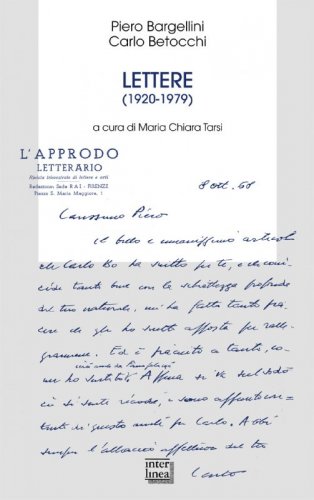 Piero Bargellini
Carlo Betocchi
LETTERE
(1920-1979)
a cura di Maria Chiara Tarsi
L'APPRODO
LETTERARIO
Rivista trimestrale di lettere e arti
Redazione: Sede RAI - FIRENZE
Piazza S. Maria Maggiore, 1
8 ott. 68
Carissimo Piero,
il bello e umanissimo articolo
che Carlo Bo ha scritto per te, e che
tanto bene con la schiettezza profonda
del tuo naturale, mi ha fatto tanto
che gli ho scritto apposta per
Ed è piaciuto a tanti,
me ho sentito
ci si sente
di questo per Carlo. A
sempre l'abbraccio affettuoso del tuo
Carlo
inter
linea